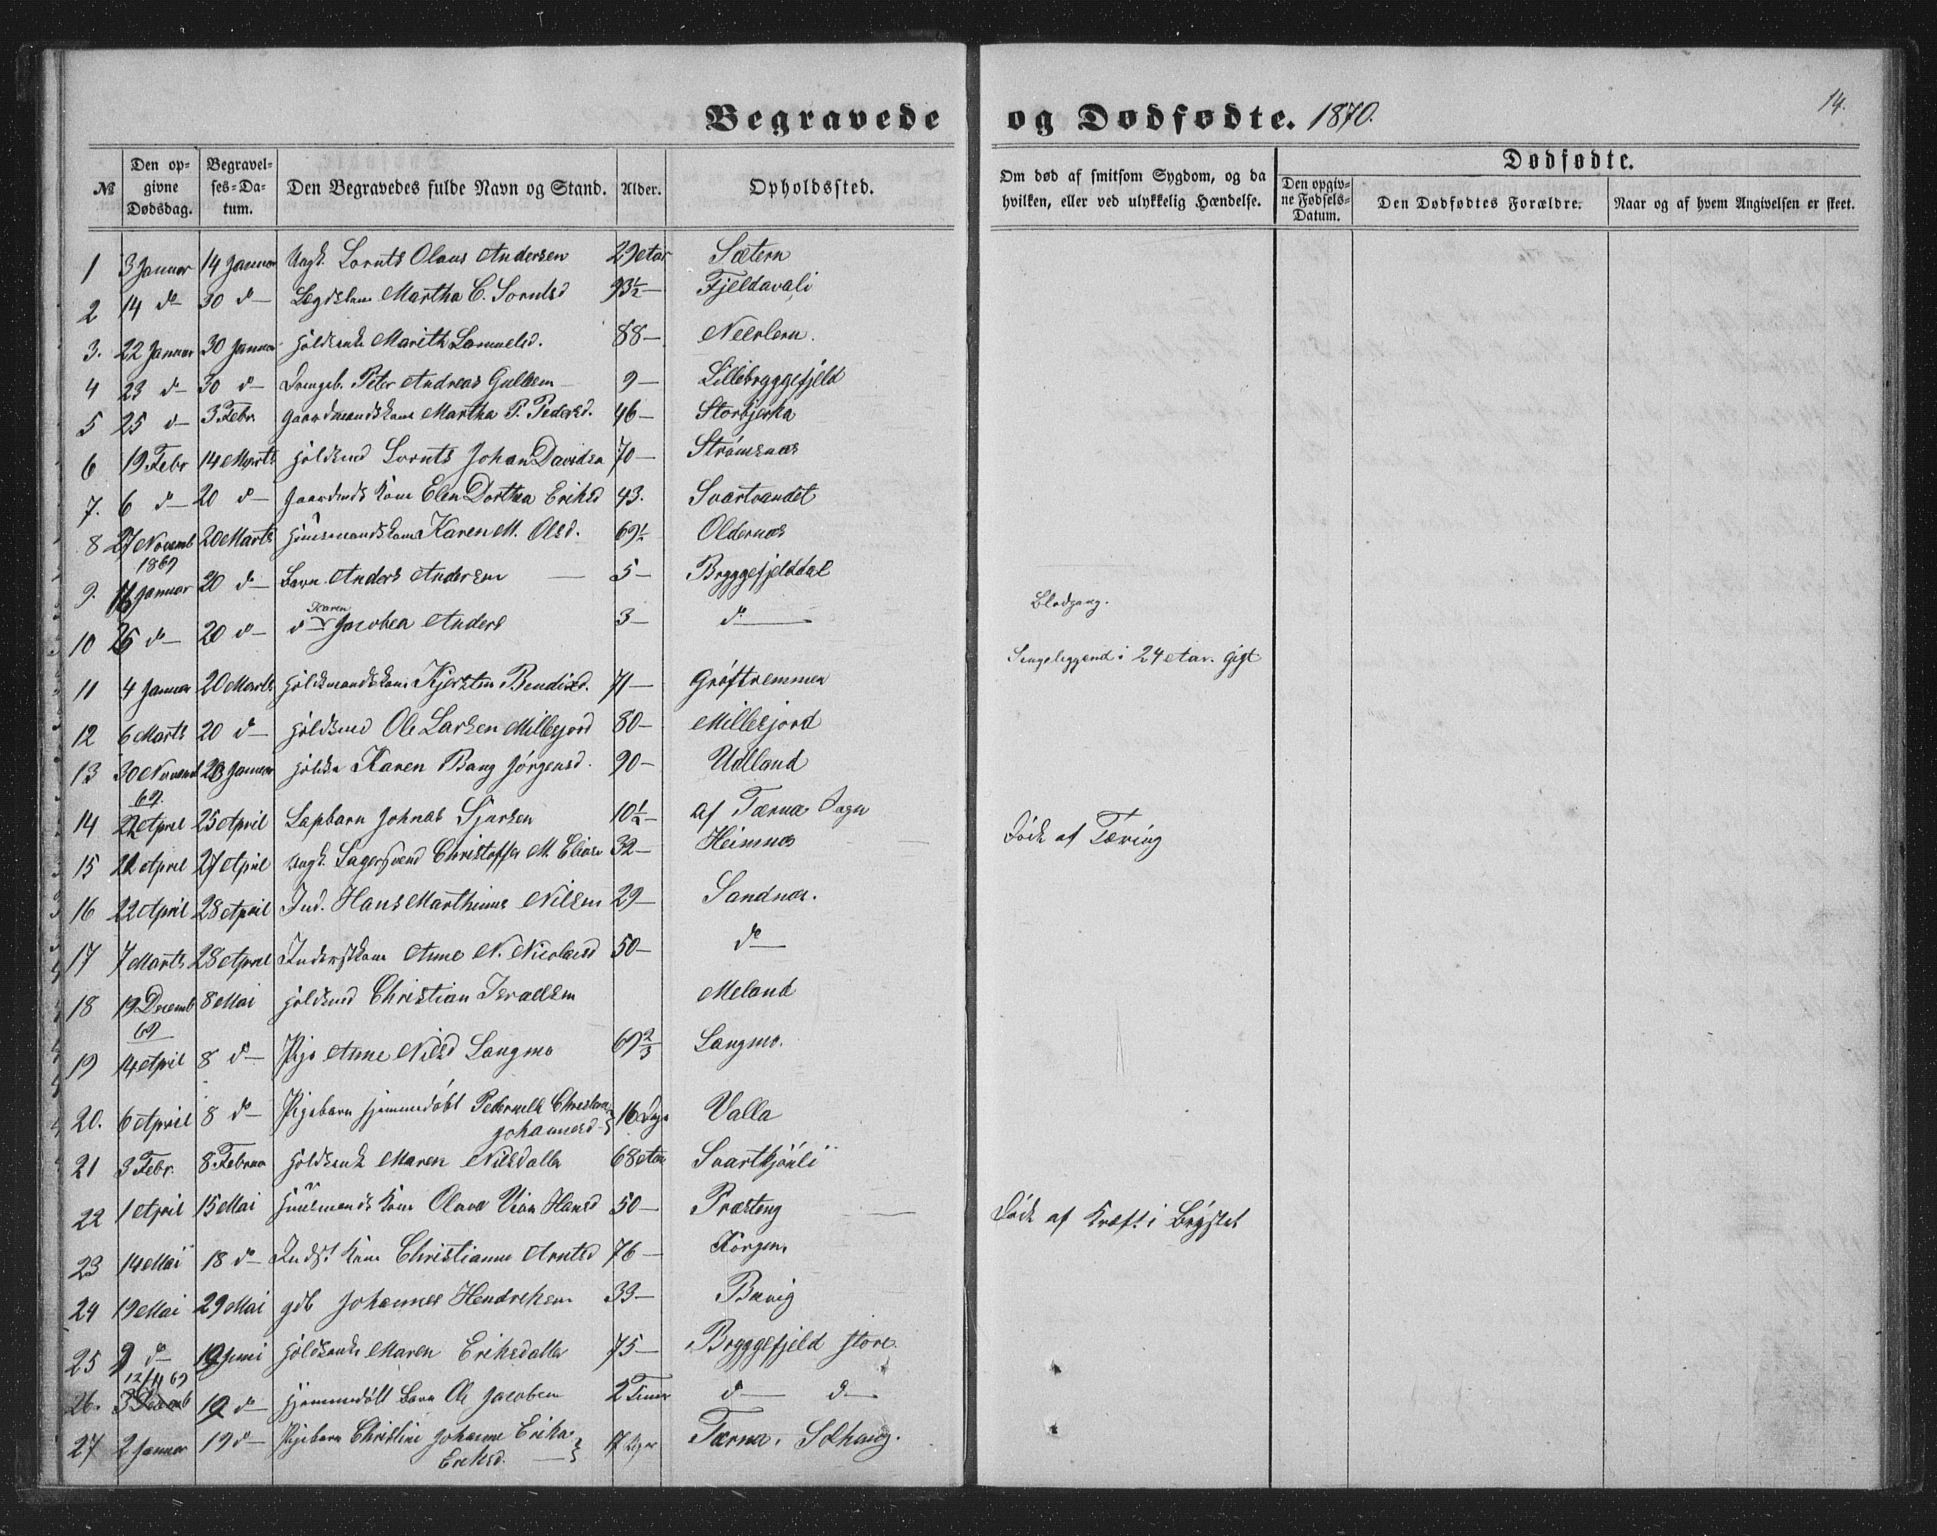 Begravede og Dødfødte. 1870.
14.
№
Den opgivne Dødsdag.
Begravelses-Datum.
Den Begravedes fulde Navn og Stand.
Alder.
Opholdssted.
Om død af smitsom Sygdom, og da hvilken, eller ved ulykkelig Hændelse.
Dødfødte.
Den opgivne Fødsels-Datum.
Den Dødfødtes Forældre.
Naar og af hvem Angivelsen er skeet.
1 3 Januar 14 Januar Ungk. Lornts Olaus Andersen 29 Aar Sætern
2 14 do 30 do Lægdslem Martha C. Lorntsd 93½ Fjeldavali
3. 22 Januar 30 Januar Marith Samuelsd. 88 Neerlern.
4 23 do 30 do Drengeb. Peter Andreas 9 Lillebryggefjeld
5 25 do 3 Febr. Gaardmandskone Martha P. Pedersd. 46 Storbjerka
6 19 Febr 14 Marts Lornts Johan Davidsen 70 Strømsnæs
7. 6 do 20 do Gaardmds Kone Elen Dorthea Eriksd 43. Svartvandet
8 27 Novemb 1869 20 Marts Huusmandskone Karen M. Olsd. 69½ Oldernæs
9. 16 Januar 20 do Barn Anders Andersen 5 Bryggefjelddal
10 26 do 20 do do Karen Jacobea Anders 3 do Blodgang.
11 4 Januar 20 Marts Kjersten Bendixd. 71 Grøftremmen Sengeliggend i 24 Aar. Gigt
12 6 Marts 20 do Ole Larsen Millesjord 80 Millesjord
13 30 Novemb 69. 23 Januar Karen Bang Jørgensd. 90 Utland
14 22 April 25 April Lapbarn Johnas Sjursen 10½ af Tærna Sogn
15 22 April 27 April Ungk. Christoffer M. 32 Heimnæs Døde af Tæring
16 22 April 28 April Ind. Hans Marthinus Nilsen 29 Sandnæs.
17 7 Marts 28 April Inderstkone Anne N. Nicolaisd 50 do
18 19 Decemb 69 8 Mai Christian Israelsen Meland
19 14 April 8 do Pige Anne Nilsd Langmo 69⅔ Langmo.
20. 6 April 8 do Pigebarn hjemmedøbt Johannesd 16 Dage Valla
21 3 Febr. 8 Februar Maren Nilsdatter 68 Aar Svartkjønli
22 1 April 15 Mai Huusmands Kone Olava Hansd 50 Præsteng Døde af Kræft i Brystet
23 14 Mai 18 do Indst Kone Christianna Arntsd 76 Korgen
24 19 Mai 29 Mai gdb Johannes Hendriksen 33 Bavig
25 9 do 19 Juni Maren Eriksdatter 75 Bryggefjeld store
26. 12/11 69 19 do hjemmedøbt Barn Ole Jacobsen 2 Timer do do
27 2 Januar 19 do Pigebarn Christine Johanne Erika Eriksd. 17 Tærna. Solhaug.